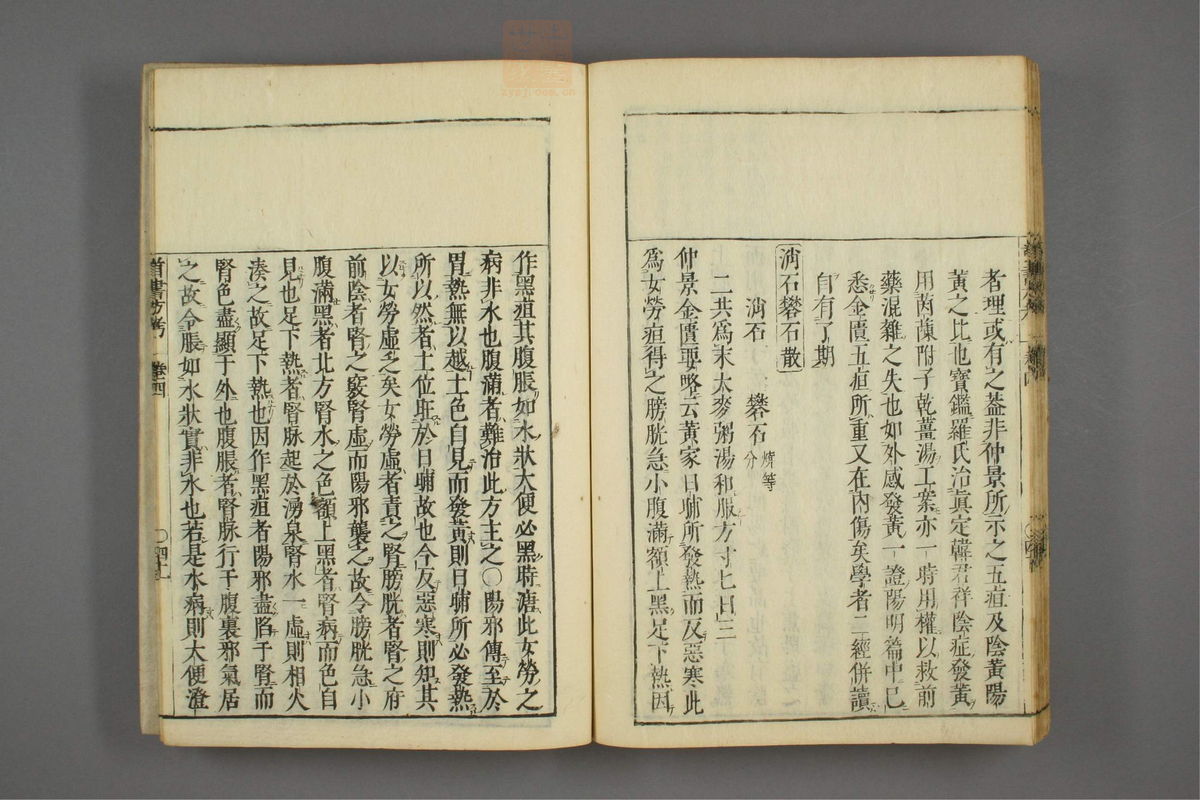 者理或有之蓋非仲景所示之五疸及陰黃陽
黃之比也寶鑑羅氏治真定韓君祥陰症發黃
用茵蔯附子乾薑湯工案亦一時用權以救前
藥混雜之失也如外感發黃一證陽明篇中已
悉金匱五疸所重又在內傷矣學者二經併讀
自有了期
消石礬石散
消石　礬石燒等分
二共爲末大麥粥湯和服方寸匕日三
仲景金匱要略云黃家日晡所發熱而反惡寒此
爲女勞疸得之膀胱急小腹滿額上黑足下熱因
作黑疸其腹脹如水狀大便必黑時溏此女勞之
病非水也腹滿者難治此方主之○陽邪傳至於
胃熱無以越土色自見而發黃則日晡所必發熱
所以然者土位旺於日晡故也今反惡寒則知其
以女勞虛之矣女勞虛者責之腎膀胱者腎之府
前陰者腎之竅腎虛而陽邪襲之故令膀胱急小
腹滿黑者北方腎水之色額上黑者腎病而色自
見也足下熱者腎脉起於湧泉腎水一虛則相火
湊之故足下熱也因作黑疸者陽邪盡陷于腎而
腎色盡顯于外也腹脹者腎脉行于腹裏邪氣居
之故令脹如水狀實非水也若是水病則大便澄
首書方考　卷四　○四十一